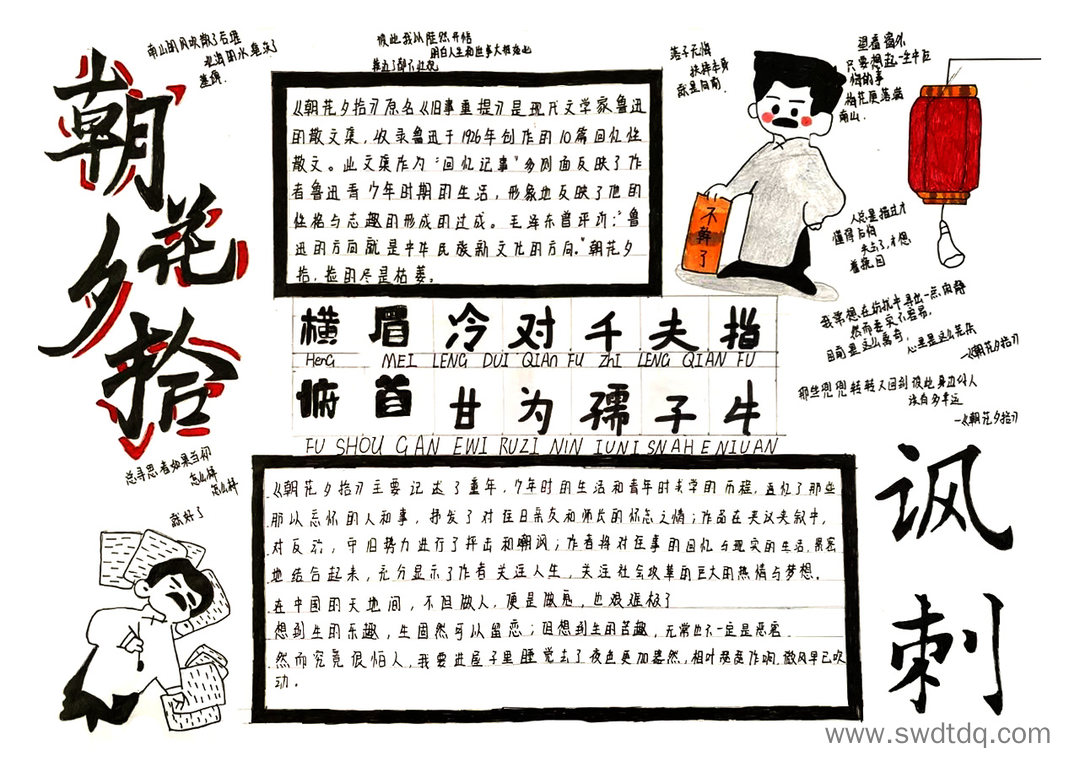 朝花夕拾
《朝花夕拾》原名《旧事重提》是现代文学家鲁迅
的散文集，收录鲁迅于1926年创作的10篇回忆性
散文。此文集作为“回忆记事”多侧面反映了作
者鲁迅青少年时期的生活，形象地反映了他的
性格与志趣的形成的过成。毛泽东曾评判：“鲁
迅的方向就是中华民族新文化的方向。”朝花夕
拾，捡的尽是枯萎。
不幹了
横眉冷对千夫指
HenG MEI LENG DUI QIAN FU Zhi LENG QIAN FU
俯首甘为孺子牛
FU SHOU GAN EWI RUZI NIN IUNI SNAH E NIUAN
《朝花夕拾》主要记述了童年，少年时的生活和青年时求学的历程，追忆了那些
那以忘怀的人和事，抒发了对往日亲友和师长的怀念之情；作品在夹议夹叙中，
对反动，守旧势力进行了抨击和嘲讽；作者将对往事的回忆与现实的生活，紧密
地结合起来，充分显示了作者关注人生，关注社会改革的巨大的热情与梦想。
在中国的天地间，不但做人，便是做鬼，也艰难极了
想到生的乐趣，生固然可以留恋；但想到生的苦趣，无常也不一定是恶客
然而究竟很怕人，我要进屋子里睡觉去了夜色更加黯然，
微风早已吹
动。
南山的风吹散了谷堆
北海的水淹没了
墓碑
望着窗外
只要想起一生中后
悔的事
梅花便落满
南山.
人总是错过才
懂得后悔
失去了，才想
着挽回
我常想在纷扰中寻出一点闲静
然而委实不容易.
目前是这么离奇，
心里是这么芜杂
—《朝花夕拾》
那些兜兜转转又回到彼此身边的人
该有多幸运
—《朝花夕拾》
总寻思着如果当初
怎么样
怎么样
就好了
讽刺
www.swdtdq.com